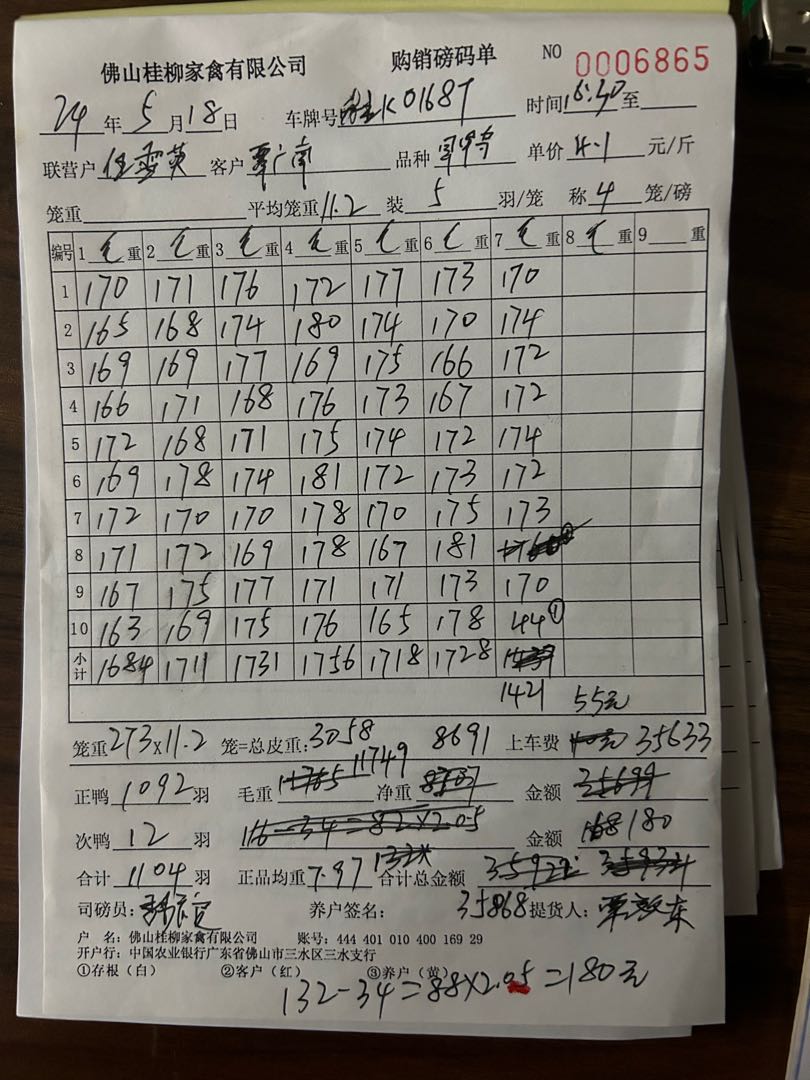 佛山桂柳家禽有限公司 购销磅码单 NO 0006865
24年5月18日 车牌号桂K0168T 时间16:30至
联营户 客户覃广南 品种 单价4.1元/斤
笼重 平均笼重11.2 装5羽/笼 称4笼/磅
编号 1毛重 2毛重 3毛重 4毛重 5毛重 6毛重 7毛重 8毛重 9重
1 170 171 176 172 177 173 170
2 165 168 174 180 174 170 174
3 169 169 177 169 175 166 172
4 166 171 168 176 173 167 172
5 172 168 171 175 174 172 174
6 169 178 174 181 172 173 172
7 172 170 170 178 170 175 173
8 171 172 169 178 167 181
9 167 175 177 171 171 173 170
10 163 169 175 176 165 178 44①
小计 1684 1711 1731 1756 1718 1728
1421 55元
笼重273×11.2笼=总皮重:3058 8691 上车费 35633
正鸭1092羽 毛重 11749 净重 金额
次鸭12羽 116-34=82×2.05 金额168 180
合计1104羽 正品均重7.97 132× 合计总金额
司磅员: 养户签名: 35868 提货人:
户 名:佛山桂柳家禽有限公司 账号:444 401 010 400 169 29
开户行:中国农业银行广东省佛山市三水区三水支行
①存根(白) ②客户(红) ③养户(黄)
132-34=88×2.05=180元